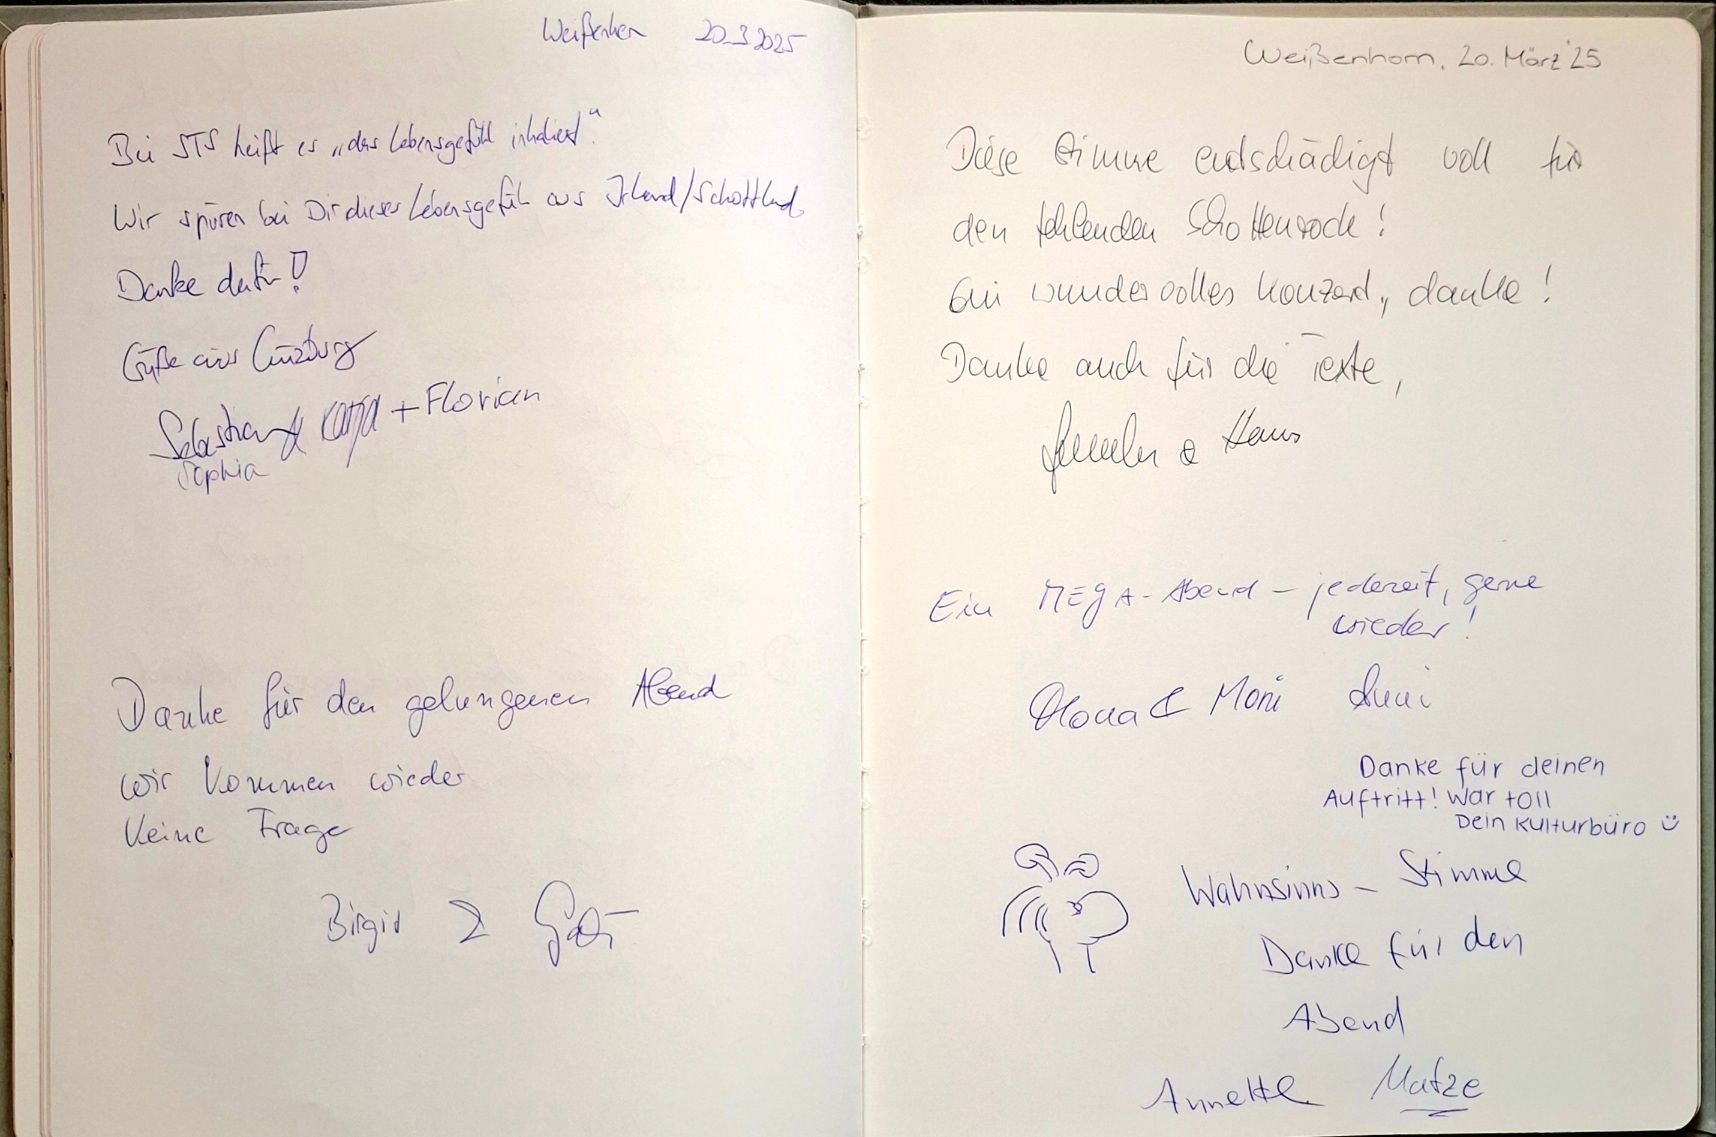 Weißenhorn 20.3.2025
Bei STS heißt es „das Lebensgefühl inhaliert“
Wir spüren bei Dir dieses Lebensgefühl aus Irland/Schottland
Danke dafür!
Grüße aus Günzburg
Sebastian & Katja + Florian
Sophia
Danke für den gelungenen Abend
wir kommen wieder
Keine Frage
Birgit &
Weißenhorn, 20. März '25
Diese Stimme entschädigt voll für
den fehlenden Schottenrock!
Ein wundervolles Konzert, danke!
Danke auch für die Texte,
& Hans
Ein MEGA-Abend – jederzeit, gerne
wieder!
& Moni
Danke für deinen
Auftritt! War toll
Dein Kulturbüro
Wahnsinns – Stimme
Danke für den
Abend
Annette Matze